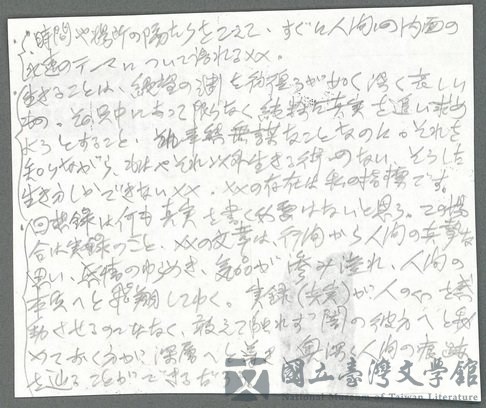 時間や場所の隔たりをこえて、すぐに人間の内面の
永遠のテーマについて語れる××。
生きることは、絶望の淵を彷徨うが如く深く哀しい
もの。その只中にあって限りなく純粋に真実を追い求め
ようとすること、それ自体無謀なことなのに。それを
知りながら、もはやそれ以外生きる術のない、そうした
生き方しかできない××。××の存在は私の指標です。
回想録は何も真実を書く必要はないと思う。この場
合は実録のこと。××の文章は、行間から人間の
思い、感情のゆらめき、気品が滲み溢れ、人間の
真実へと飛翔してゆく。実録(真実)が人の心を感
動させるのではなく、敢えて触れずに闇の彼方へと秘
めておく方が深層へと
を辿ることができるだ
國立臺灣文學館
National Museum of Taiwan Literature